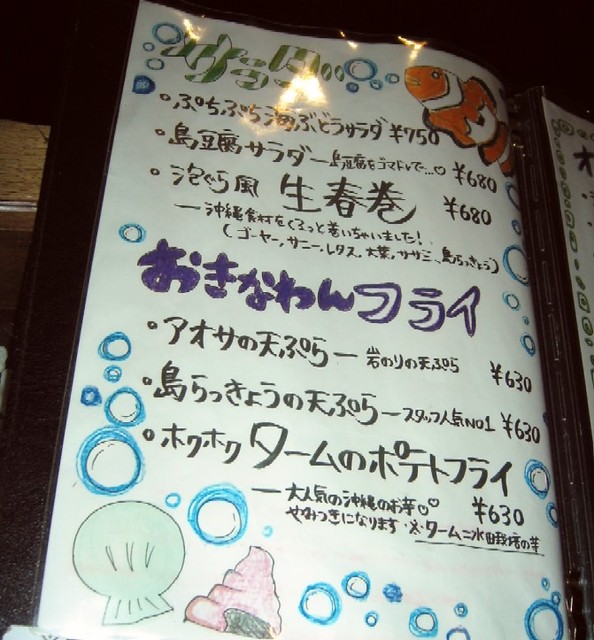 サラダ
・ぷちぷち海ぶどうサラダ ¥750
・島豆腐サラダ—島豆腐をマトして…♡ ¥680
・泡ぐら風 生春巻 ¥680
—沖縄食材をくるっと巻いちゃいました!
(ゴーヤー、サニーレタス、大葉、ササミ、島らっきょう)
おきなわんフライ
・アオサの天ぷら—岩のりの天ぷら ¥630
・島らっきょうの天ぷら—スタッフ人気NO1 ¥630
・ホクホク タームのポテトフライ
—大人気の沖縄のお芋♡♡ ¥630
やみつきになります・※ターム=水田栽培の芋